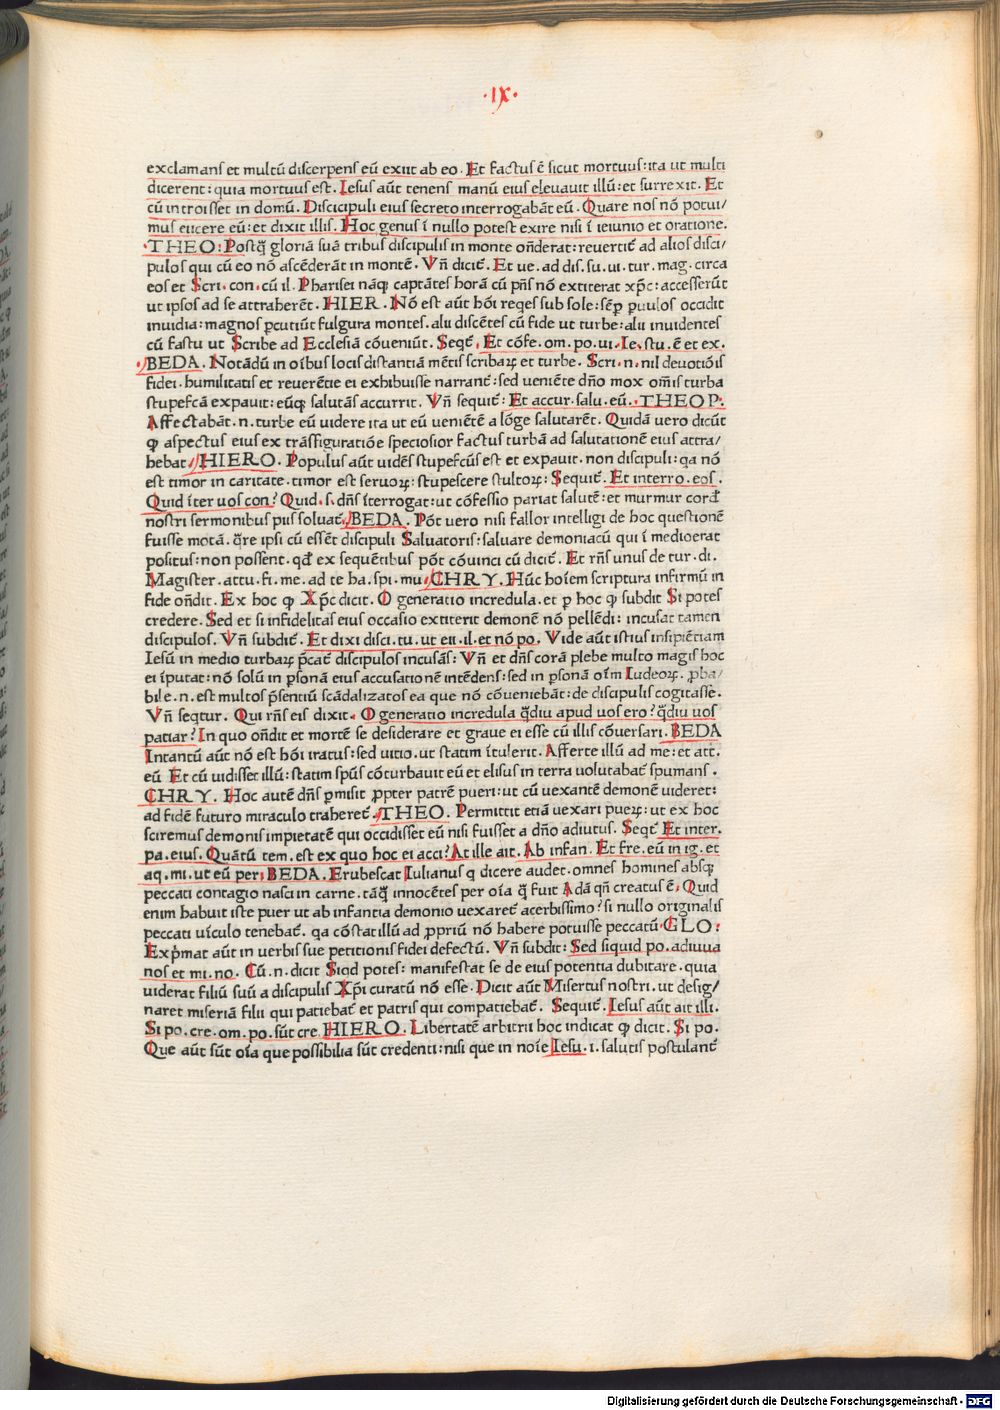 ·IX·
exclamans et multū discerpens eū exiit ab eo. Et factus ē sicut mortuus: ita ut multi
dicerent: quia mortuus est. Iesus aūt tenens manū eius eleuauit illū: et surrexit. Et
cū introisset in domū. Discipuli eius secreto interrogabāt eū. Quare nos nō potui/
mus eiicere eū: et dixit illis. Hoc genus ī nullo potest exire nisi ī ieiunio et oratione.
THEO: Postq̄ gloriā suā tribus discipulis in monte on̄derat: reuertit᷑ ad alios disci/
pulos qui cū eo nō ascēderāt in montē. Vn̄ dicit᷑. Et ue. ad dis. su. ui. tur. mag. circa
eos et Scri. con. cū il. Pharisei nāq; captātes horā cū pn̄s nō extiterat xp̄c: accesserūt
ut ipsos ad se attraherēt. HIER. Nō est aūt hōi reqes sub sole: sēp̱ ꝑuulos occidit
inuidia: magnos ꝑcutiūt fulgura montes. alii discētes cū fide ut turbe: alii inuidentes
cū fastu ut Scribe ad Ecclesiā cōueniūt. Seqt᷑. Et cōfe. om. po. ui. Ie. stu. ē et ex.
BEDA. Notādū in oībus locis distantiā mētis scribaꝝ et turbe. Scri. n. nil deuotiōis
fidei. humilitatis et reuerētie ei exhibuisse narrant᷑: sed ueniēte dn̄o mox om̄is turba
stupefcā expauit: eūq; salutās accurrit. Vn̄ sequit᷑: Et accur. salu. eū. THEOP.
Affectabāt. n. turbe eū uidere ita ut eū ueniētē a lōge salutarēt. Quidā uero dicūt
ꝙ aspectus eius ex trāsfiguratiōe speciosior factus turbā ad salutationē eius attra/
hebat. HIERO. Populus aūt uidēs stupefcūs est et expauit. non discipuli: qa nō
est timor in caritate. timor est seruoꝝ: stupescere stultoꝝ: Sequit᷑. Et interro. eos.
Quid īter uos con? Quid. s. dn̄s īterrogat: ut cōfessio pariat salutē: et murmur cord᷑
nostri sermonibus piis soluat᷑. BEDA. Pōt uero nisi fallor intelligi de hoc questionē
fuisse motā. q̄re ipsi cū essēt discipuli Saluatoris: saluare demoniacū qui ī medio erat
positus: non possent. qd᷑ ex sequētibus pōt cōuinci cū dicit᷑. Et rn̄s unus de tur. di.
Magister. attu. fi. me. ad te ha. spi. mu. CHRY. Hūc hoīem scriptura infirmū in
fide on̄dit. Ex hoc ꝙ Xp̄c dicit. O generatio incredula. et ꝑ hoc ꝙ subdit Si potes
credere. Sed et si infidelitas eius occasio extiterit demonē nō pellēdi: incusat tamen
discipulos. Vn̄ subdit᷑. Et dixi disci. tu. ut eii. il. et nō po. Vide aūt istius insipiētiam
Iesū in medio turbaꝝ p̄cat᷑ discipulos incusās: Vn̄ et dn̄s corā plebe multo magis hoc
ei īputat: nō solū in ꝑsonā eius accusationē intēdens: sed in ꝑsonā oīm Iudeoꝝ. ꝓba/
bile. n. est multos p̄sentiū scādalizatos ea que nō cōueniebāt: de discipulis cogitasse.
Vn̄ seqtur. Qui rn̄s eis dixit. O generatio incredula q̄diu apud uos ero? q̄diu uos
patiar? In quo on̄dit et mortē se desiderare et graue ei esse cū illis cōuersari. BEDA
Intantū aūt nō est hōi iratus: sed uitio. ut statim ītulerit. Afferte illū ad me: et att.
eū Et cū uidisset illū: statim spūs cōturbauit eū et elisus in terra uolutabat᷑ spumans.
CHRY. Hoc autē dn̄s ꝑmisit ꝓpter patrē pueri: ut cū uexantē demonē uideret:
ad fidē futuro miraculo traheret᷑. THEO. Permittit etiā uexari pueꝝ: ut ex hoc
sciremus demonis impietatē qui occidisset eū nisi fuisset a dn̄o adiutus. Seqt᷑ Et inter.
pa. eius. Quātū tem. est ex quo hoc ei acci? At ille ait. Ab infan. Et fre. eū in ig. et
aq. mi. ut eū per. BEDA. Erubescat Iulianus q dicere audet. omnes homines absq;
peccati contagio nasci in carne. tāq̄ innocētes per oīa q̄ fuit Adā qn̄ creatus ē. Quid
enim habuit iste puer ut ab infantia demonio uexaret᷑ acerbissimo? si nullo originalis
peccati uīculo tenebat᷑. qa cōstat illū ad ꝓpriū nō habere potuisse peccatū. GLO:
Exp̄mat aūt in uerbis sue petitionis fidei defectū. Vn̄ subdit: Sed siquid po. adiuua
nos et mi. no. Cū. n. dicit Siqd potes: manifestat se de eius potentia dubitare. quia
uiderat filiū suū a discipulis Xp̄i curatū nō esse. Dicit aūt Misertus nostri. ut desig/
naret miseriā filii qui patiebat᷑ et patris qui compatiebat᷑. Sequit᷑. Iesus aūt ait illi.
Si po. cre. om. po. sūt cre. HIERO. Libertatē arbitrii hoc indicat ꝙ dicit. Si po.
Que aūt sūt oīa que possibilia sūt credenti: nisi que in noīe Iesu. i. salutis postulant᷑
Digitalisierung gefördert durch die Deutsche Forschungsgemeinschaft - DFG